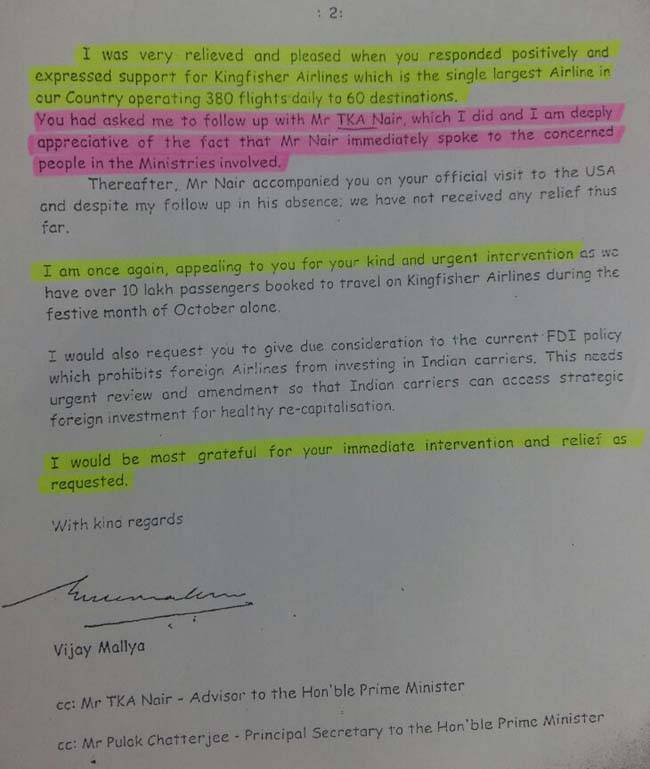 : 2:
I was very relieved and pleased when you responded positively and
expressed support for Kingfisher Airlines which is the single largest Airline in
our Country operating 380 flights daily to 60 destinations.
You had asked me to follow up with Mr TKA Nair, which I did and I am deeply
appreciative of the fact that Mr Nair immediately spoke to the concerned
people in the Ministries involved.
Thereafter, Mr Nair accompanied you on your official visit to the USA
and despite my follow up in his absence; we have not received any relief thus
far.
I am once again, appealing to you for your kind and urgent intervention as we
have over 10 lakh passengers booked to travel on Kingfisher Airlines during the
festive month of October alone.
I would also request you to give due consideration to the current FDI policy
which prohibits foreign Airlines from investing in Indian carriers. This needs
urgent review and amendment so that Indian carriers can access strategic
foreign investment for healthy re-capitalisation.
I would be most grateful for your immediate intervention and relief as
requested.
With kind regards
Vijay Mallya
cc: Mr TKA Nair - Advisor to the Hon'ble Prime Minister
cc: Mr Pulok Chatterjee - Principal Secretary to the Hon'ble Prime Minister